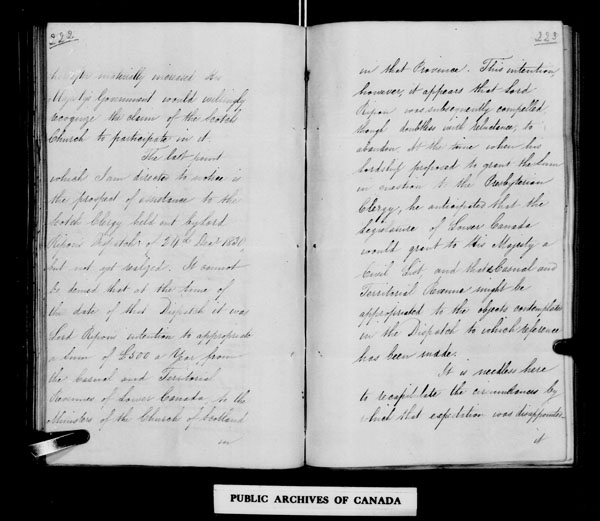 222
materially increased His
Majesty's Government would willingly
recognize the claim of the Scotch
Church to participate in it.
The last point
which I am directed to notice is
the prospect of assistance to the
Scotch Clergy held out by Lord
Ripon's Dispatch of 24th Decr 1830
but not yet realized. It cannot
be denied that at the time of
the date of that Dispatch it was
Lord Ripon's intention to appropriate
a Sum of £500 a Year, from
the Casual and Territorial
Revenues of Lower Canada, to the
Ministers of the Church of Scotland
in
223
in that Province. This intention
however, it appears that Lord
Ripon was subsequently compelled
though doubtless with reluctance, to
abandon. At the time when his
Lordship proposed to grant the Sum
in question to the Presbyterian
Clergy, he anticipated that the
Legislature of Lower Canada
would grant to His Majesty a
Civil List and that Casual and
Territorial Revenue might be
appropriated to the objects contemplated
in the Dispatch to which reference
has been made.
It is needless here
to recapitulate the circumstances by
which that expectation was disappointed
it
PUBLIC ARCHIVES OF CANADA